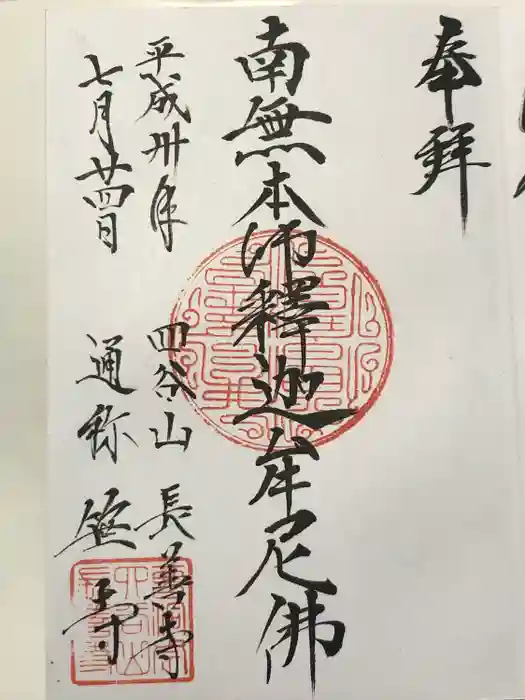 奉拝
南無本師釋迦牟尼佛
平成卅年
四谷山 長善寺
七月廿四日
通称 笹寺